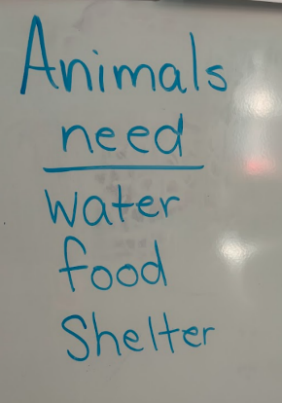 Animals
need
water
food
Shelter